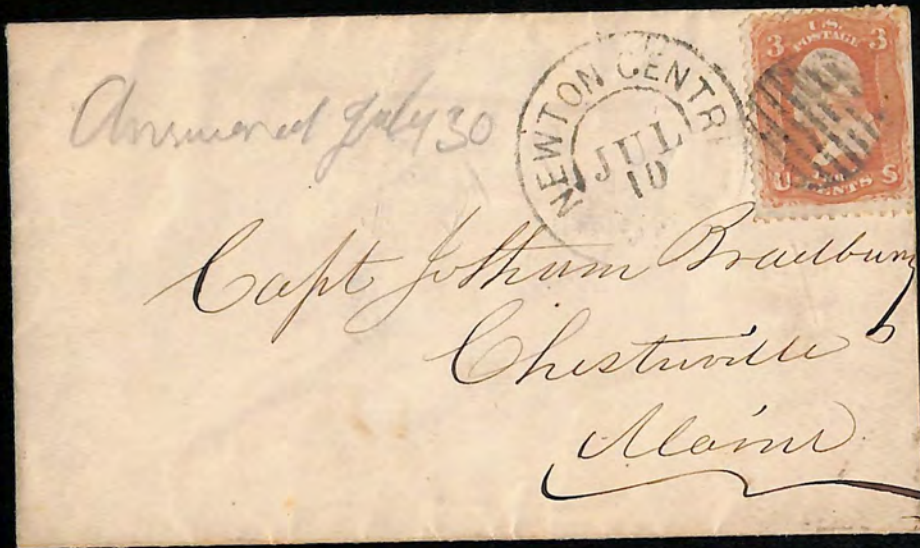 Answered July 30
NEWTON CENTR
JUL
10
U.S.
POSTAGE
3 3
U CENTS S
Capt Jotham Bradbury
Chesterville
Maine